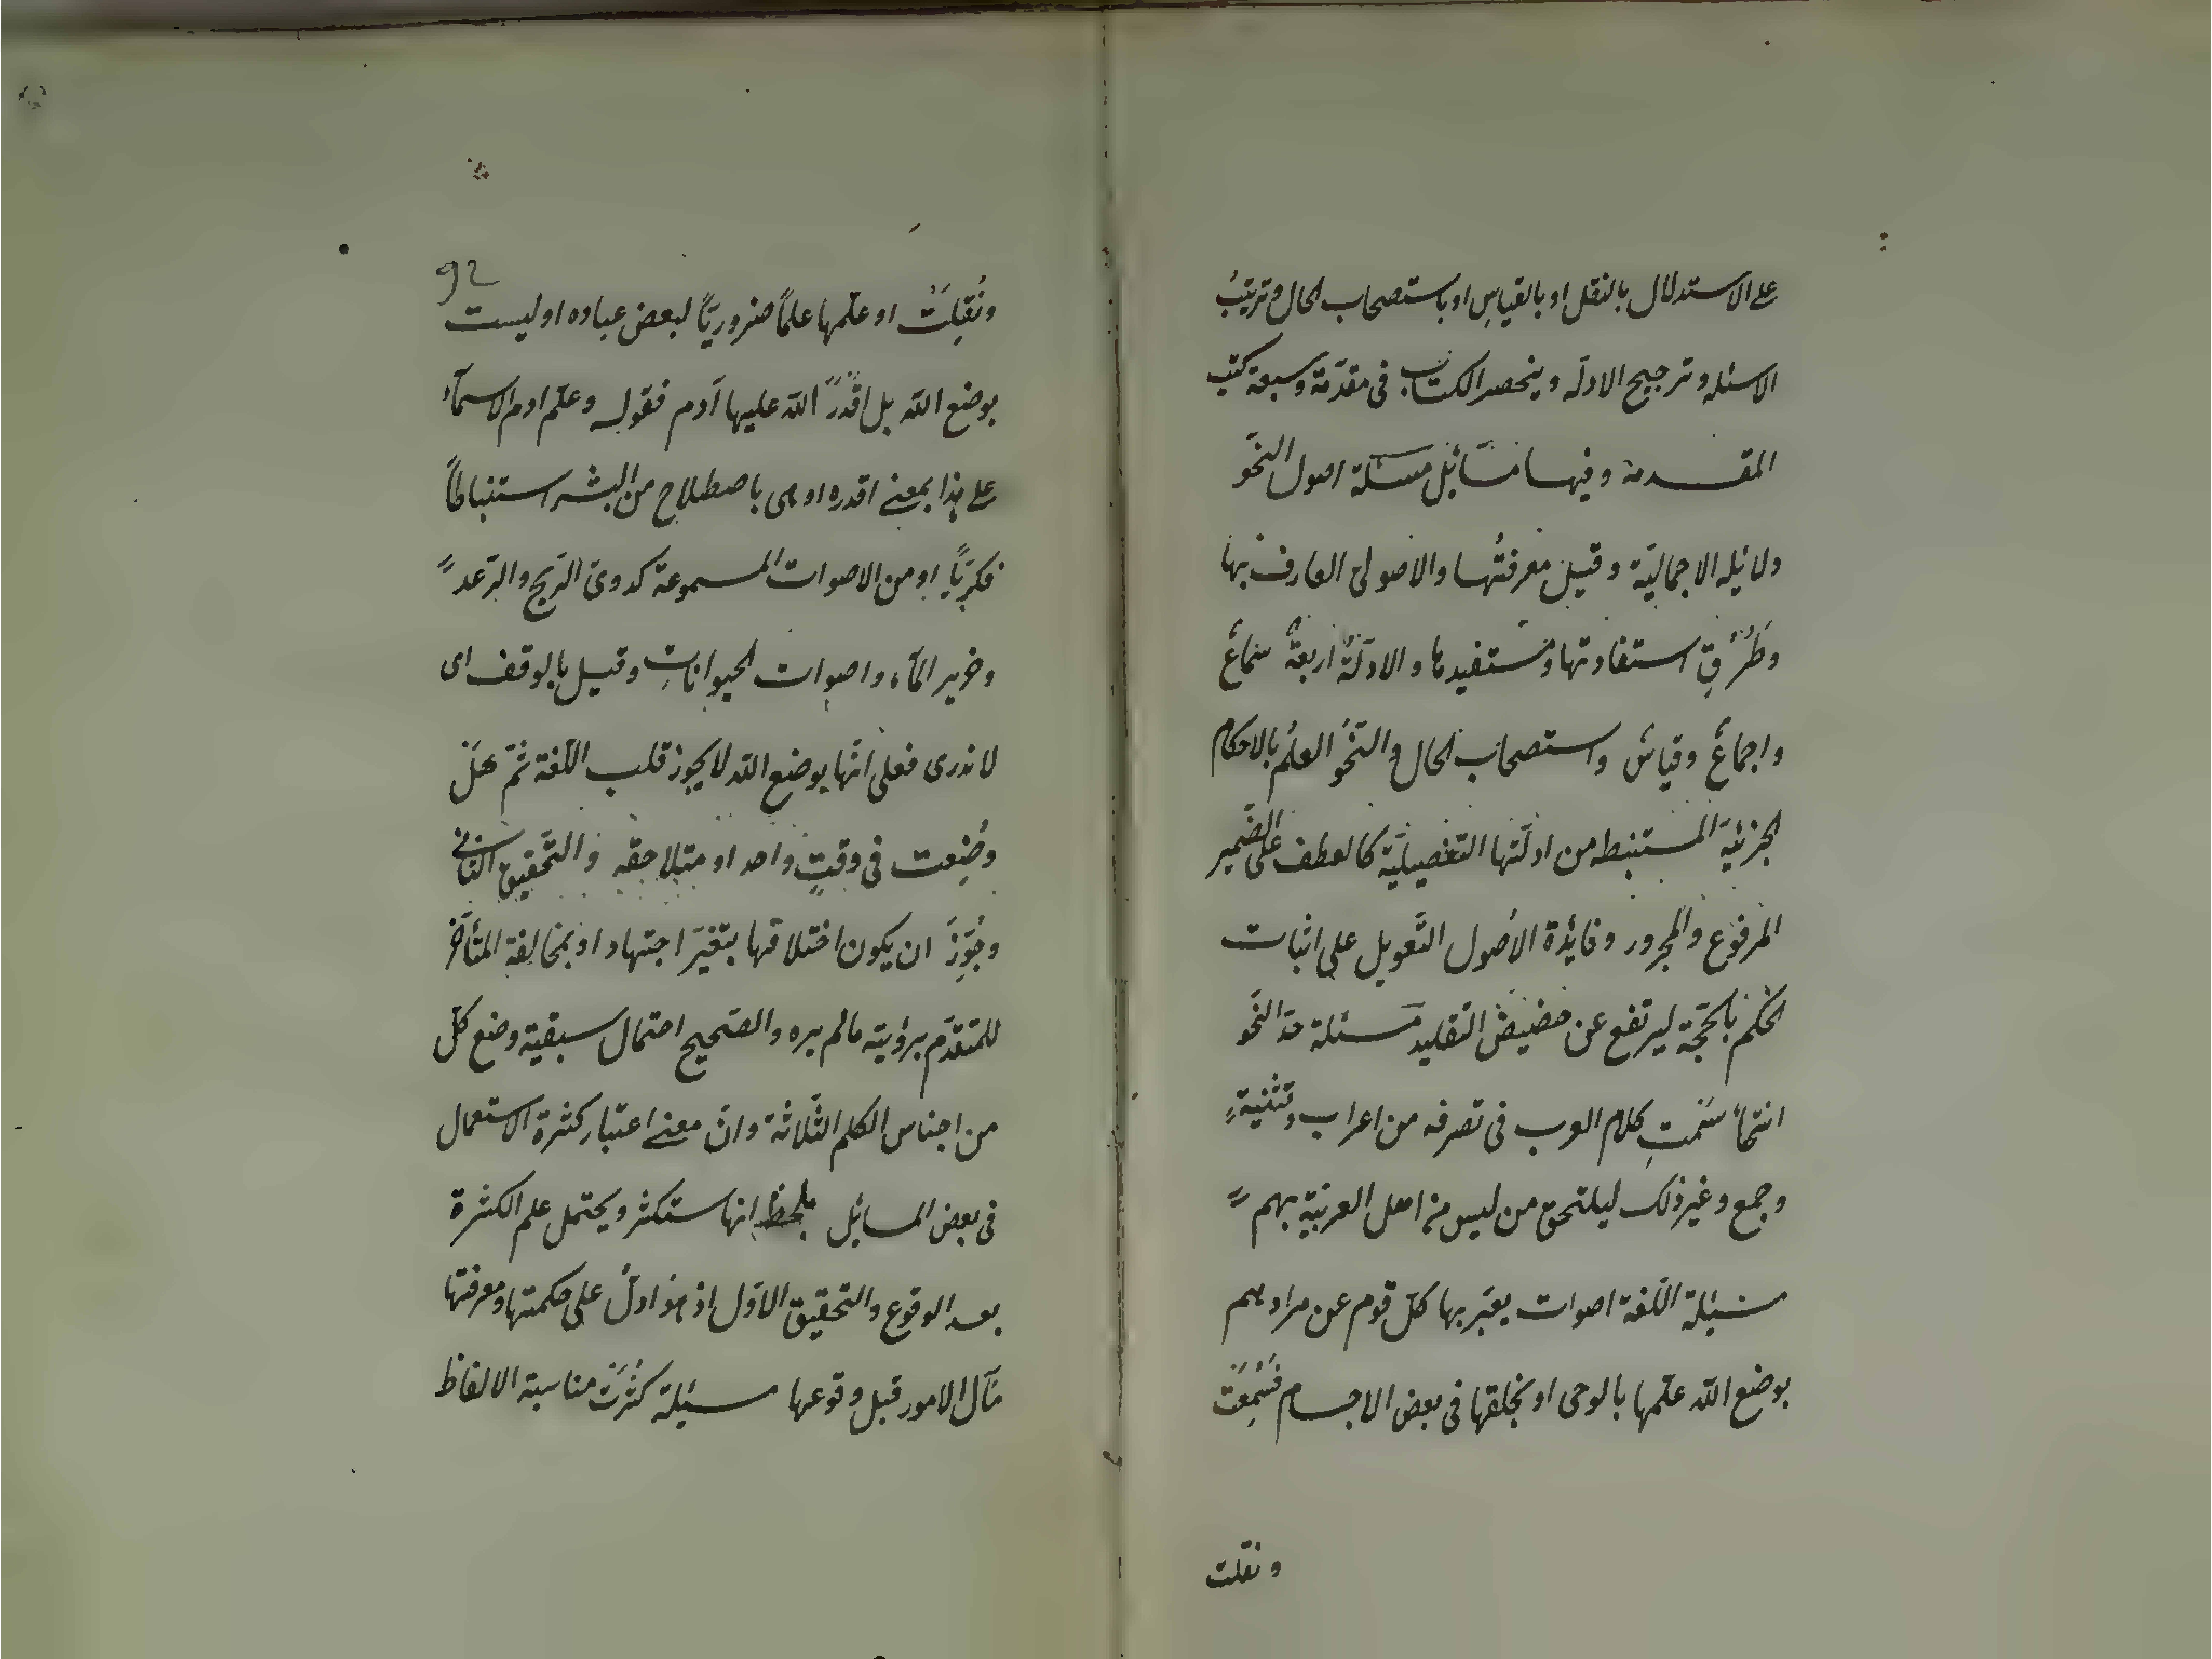 على الاستدلال بالنقل او بالقياسِ او باستصحاب الحال وترتيبُ
الاسئله وترجيح الادلّه وينحصر الكتاب فى مقدّمة وسبعة كتب
المقدمة وفيها مسَائل مسئلة اصول النّحو
دلائله الاجماليّة وقيل معرفتُها والاصولىّ العارف بها
وطُرُقِ استفادتها ومستفيدها والادلّةُ اربعةٌ سماعٌ
واجماعٌ وقياسٌ واستصحاب الحال والنّحو العلمُ بالاحكام
الجزئيّة المستنبطه من ادلّتها التّفصيليّة كالعطف على الضّمير
المرفوع والمجرور وفائدة الاُصول التّعويل على اثبات
الحكم بالحجّة ليرتفع عن حضيض التّقليد مسئلة حدّ النّحو
انتحاءُ سَمتِ كلام العرب فى تصرفه من اعراب وتثنيةٍ
وجمع وغير ذلك ليلتحق من ليس من اهل العربيّة بهم
مسئلة اللّغة اصوات يعبّر بها كلّ قوم عن مرادهم
بوضع اللّه علّمها بالوحى او بخلقها فى بعض الاجسام فَسُمِعَت
ونقلت
92
ونُقِلَتْ او علّمها علماً ضروريّاً لبعض عباده او ليست
بوضع اللّه بل اقْدَرَ اللّه عليها آدم فقوله وعلّم ادم الاسمآءَ
على هذا بمعنى اقدره او هى باصطلاح من البشر استنباطاً
فكريّاً او من الاصوات المسموعة كدوىّ الرّيح والرّعد
وخرير المآء واصوات الحيواناتِ وقيل بالوقف اى
لا ندرى فعلى انّها بوضع اللّه لا يجوز قلب اللّغة ثمّ هَل
وضُِعت فى وقتٍ واحد او متلاحقه والتّحقيق الثّانى
وجُوّزَ ان يكون اختلافها بتغيّر اجتهاد او بمخالفة المتأخّر
للمتقدّم برؤيته مالم يره والصّحيح احتمال سبقية وضع كلّ
من اجناس الكلم الثّلاثة وانّ معنى اعتبار كثرة الاستعمال
فى بعض المسائل ملحظ انها ستكثر ويحتمل علم الكثرة
بعد الوقوع والتحقيق الاوّل اذ هو ادلُّ على حكمتها ومعرفتها
مَآل الامور قبل وقوعها مسئلة كثُرَت مناسبة الالفاظ